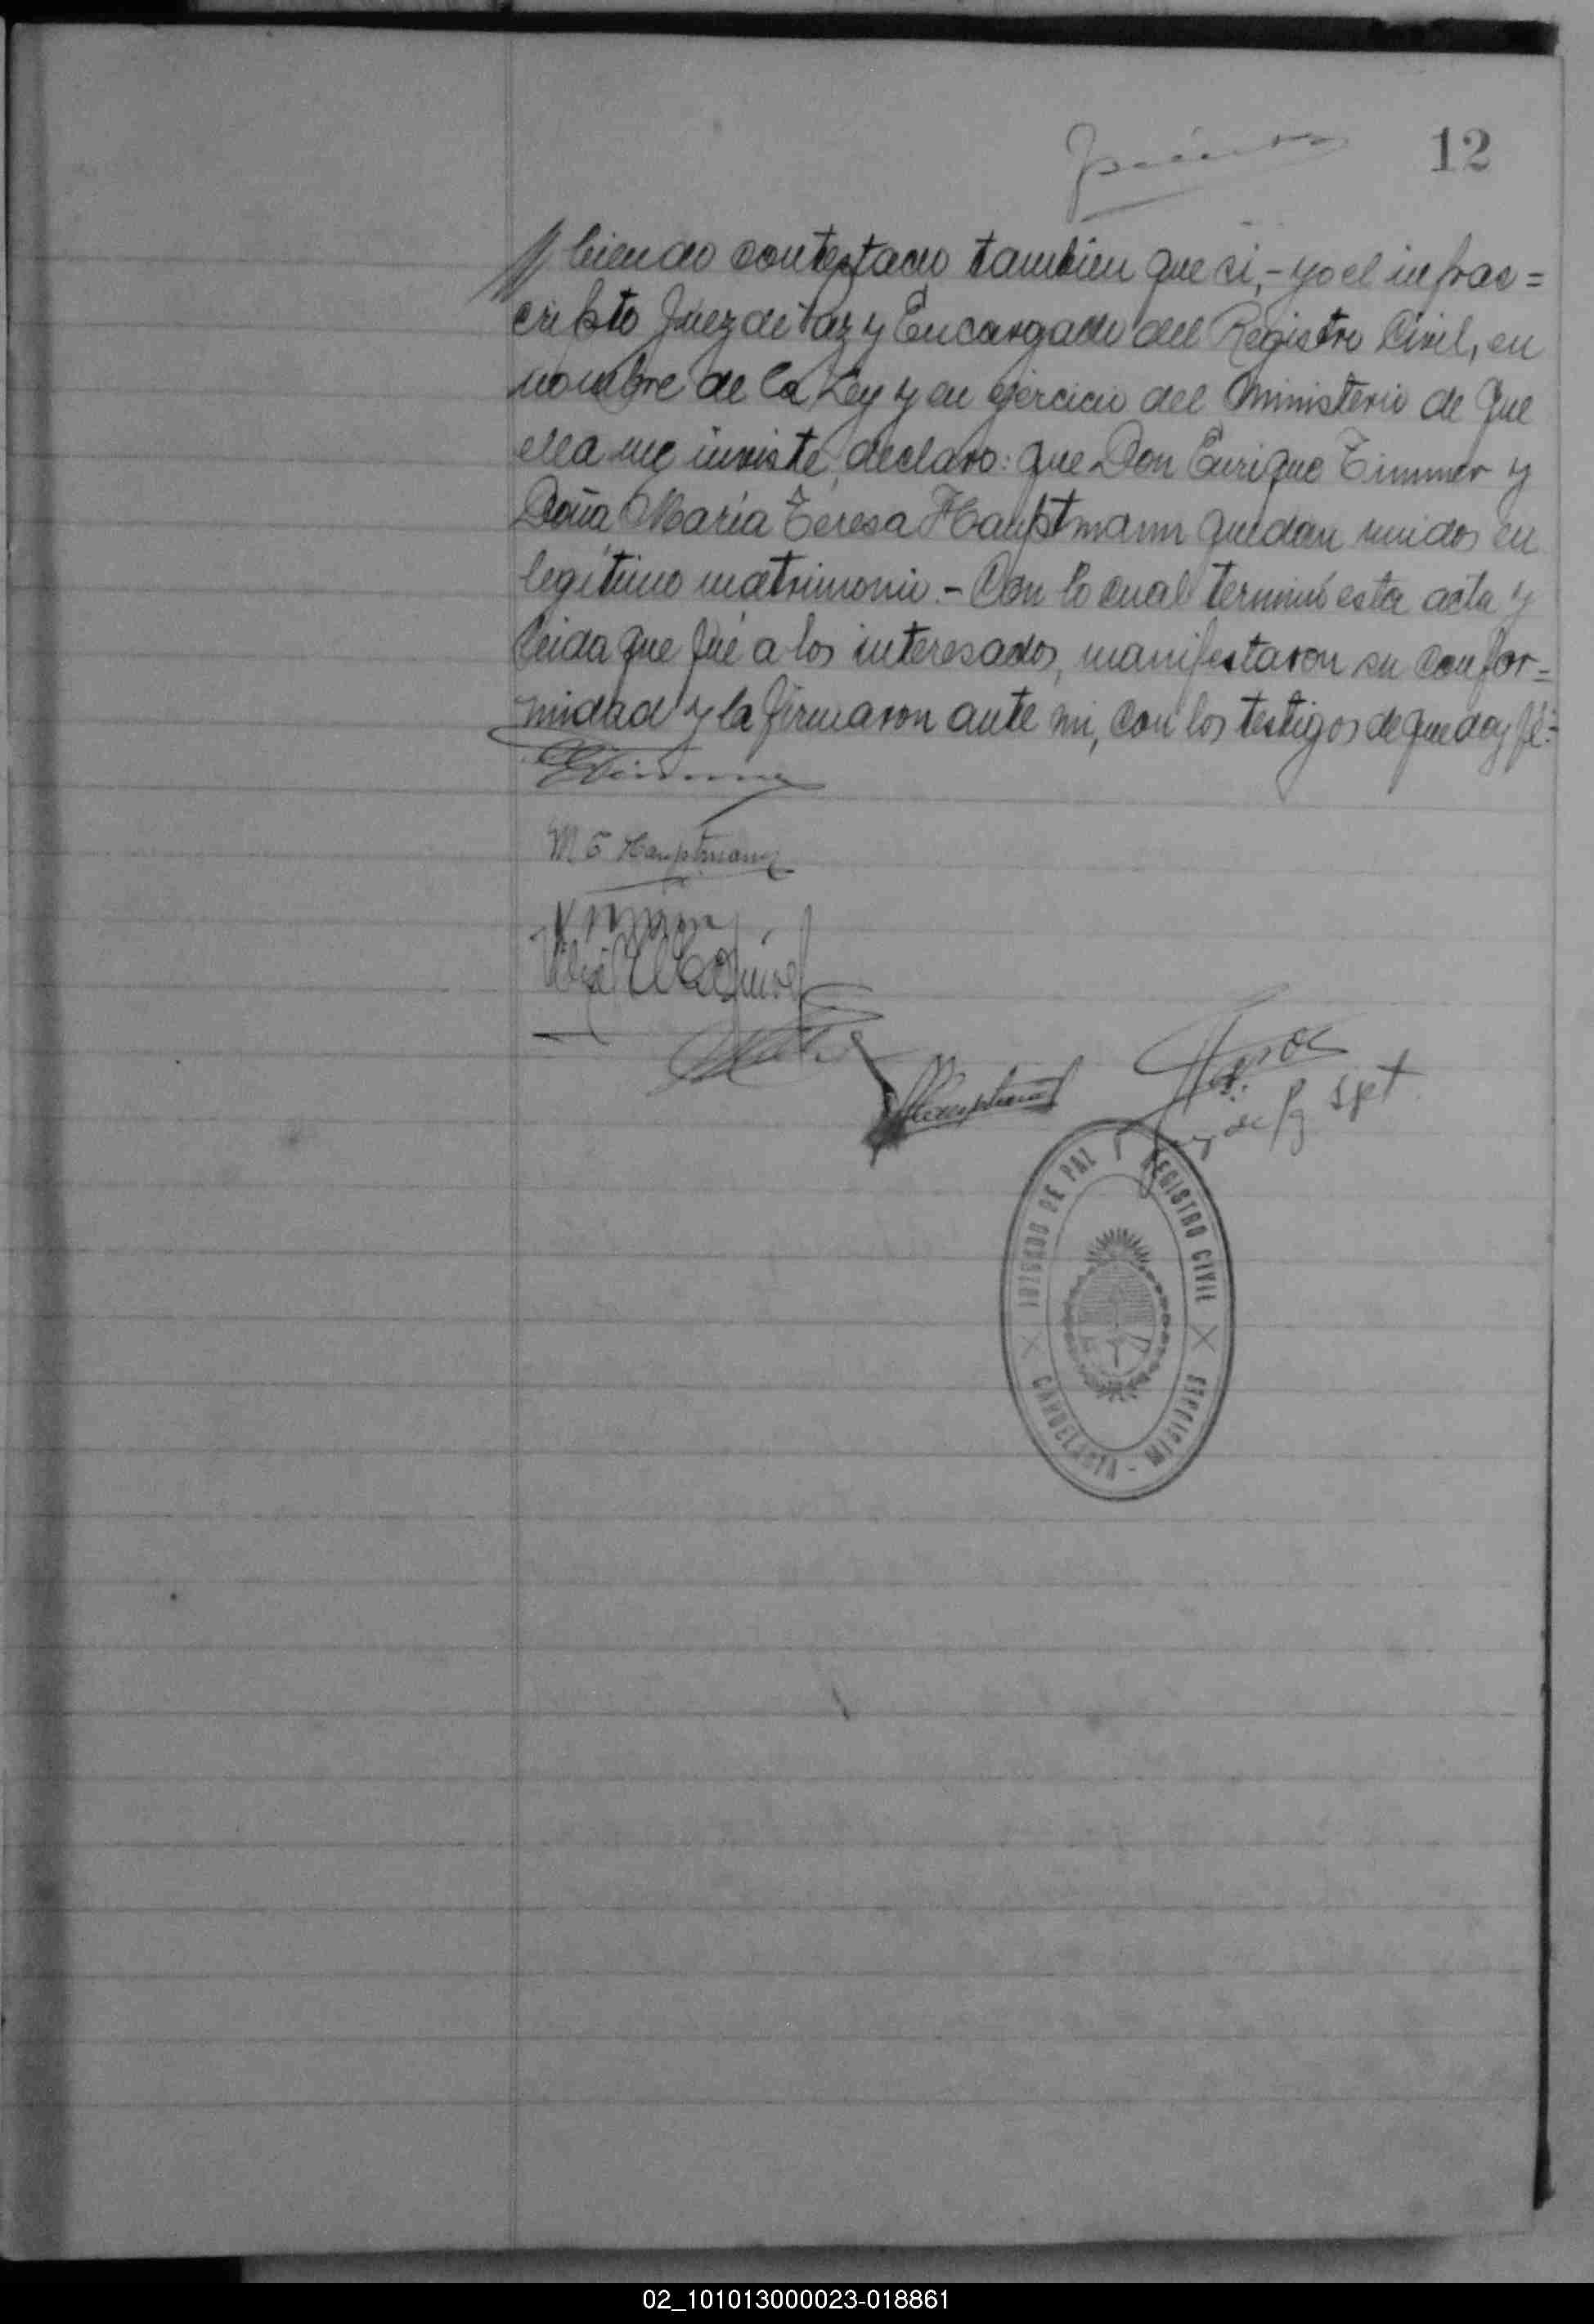 12
biendo contestado tambien que si,- yo el infras=
cripto Juez de Paz y Encargado del Registro Civil, en
nombre de la Ley y en ejercicio del Ministerio de que
ella me inviste, declaro: que Don Enrique Timmer y
Doña María Teresa Hauptmann quedan unidos en
legítimo matrimonio.- Con lo cual terminó esta acta y
leida que fué a los interesados, manifestaron su confor=
midad y la firmaron ante mi, con los testigos de que doy fé.-
M T Hauptmann
Juez de Pz Spt.
JUZGADO DE PAZ Y REGISTRO CIVIL
CANDELARIA - MISIONES
02_101013000023-018861